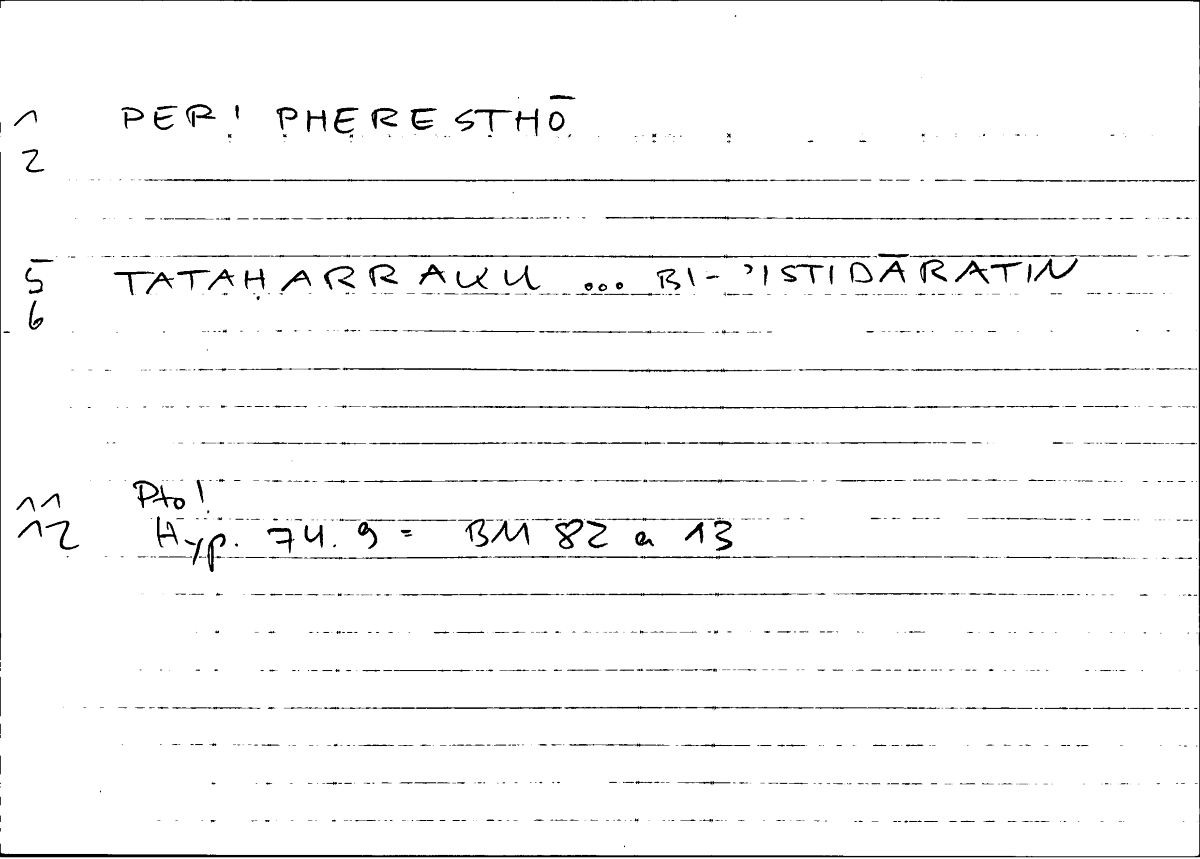 1 PERI PHERESTHŌ
2
5 TATAḤARRAKU ... BI-'ISTIDĀRATIN
6
11 Pto!
12 Hyp. 74.9 = BM 82 a 13